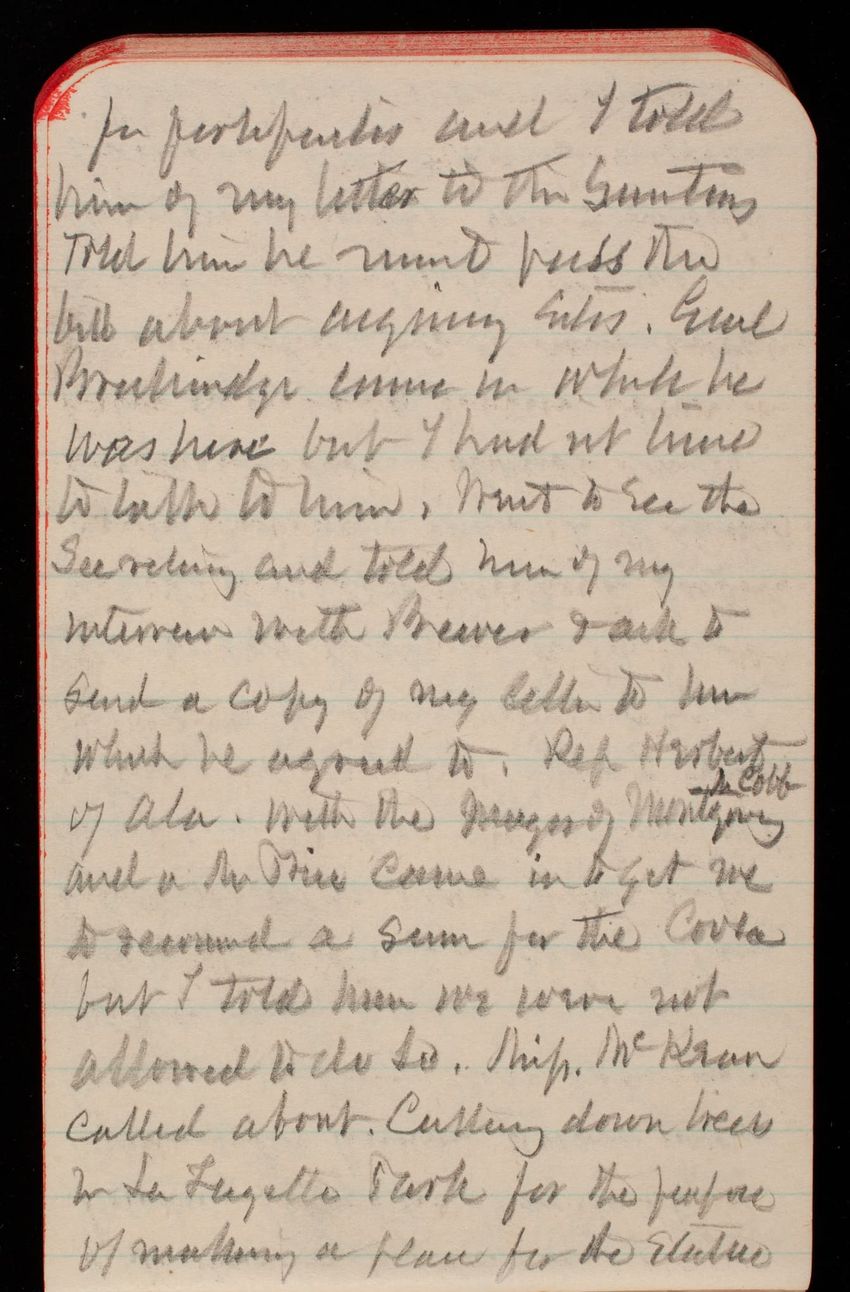 for fortifications and I told
him of my letter to the
Told him he must pass the
bill about acquiring sites. Genl
Breckinridge came in while he
was here but I had not time
to talk to him. Went to see the
Secretary and told him of my
interview with Brewer & ask to
send a copy of my letter to him
which he agreed to. Rep Herbert
Mr Cobb
of Ala. with the Mayor of Montgomery
and a Mr came in to get me
to recommend a sum for the Coosa
but I told him we were not
allowed to do so. Miss. McKean
called about. Cutting down trees
in La Fayette Park for the purpose
of making a place for the Statue